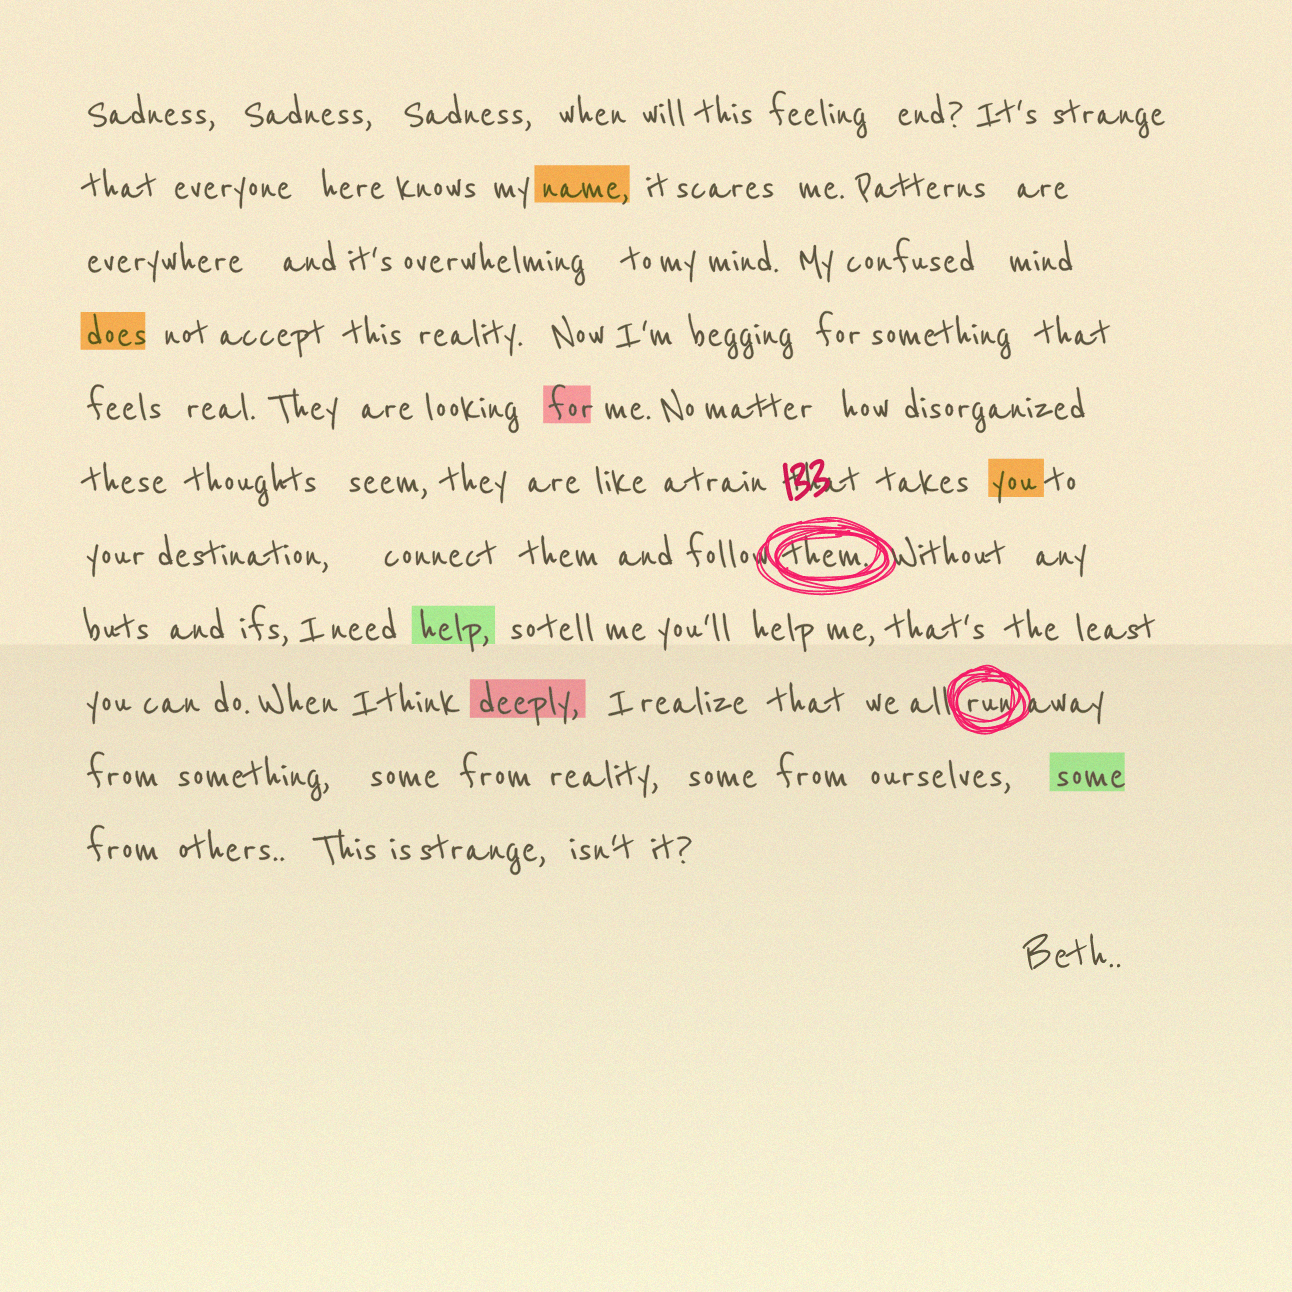 Sadness, Sadness, Sadness, when will this feeling end? It's strange
that everyone here knows my name, it scares me. Patterns are
everywhere and it's overwhelming to my mind. My confused mind
does not accept this reality. Now I'm begging for something that
feels real. They are looking for me. No matter how disorganized
these thoughts seem, they are like a train that takes you to
133
your destination, connect them and follow them. Without any
buts and ifs, I need help, so tell me you'll help me, that's the least
you can do. When I think deeply, I realize that we all run away
from something, some from reality, some from ourselves, some
from others.. This is strange, isn't it?
Beth..